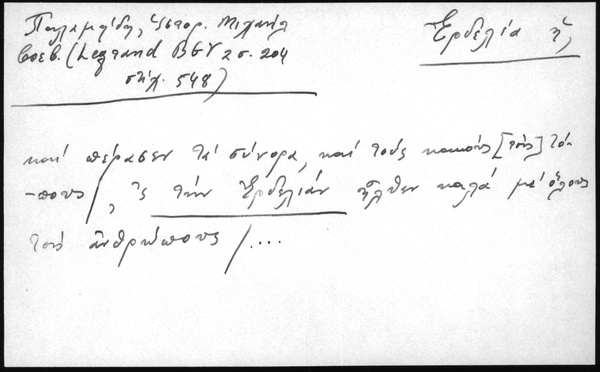 Παλαμήδη, Ἱστορ. Μιχαήλ
βοεβ. (Legrand BGV 2 σ. 204
στίχ. 548)
Ἐρδελία ἡ,
καί πέρασεν τά σύνορα, καί τούς κακούς [τούς] τό-
-πους /, 'ς τήν Ἐρδελιάν ἦλθεν καλά μέ ὅλους
τούς ἀνθρώπους /....